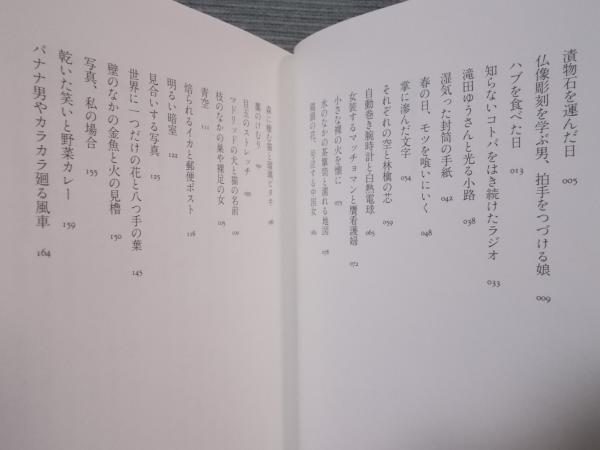 漬物石を運んだ日 005
仏像彫刻を学ぶ男、拍手をつづける娘 009
ハブを食べた日 013
知らないコトバをはき続けたラジオ 033
滝田ゆうさんと光る小路 038
湿気った封筒の手紙 042
春の日、モツを喰いにいく 048
掌に滲んだ文字 054
それぞれの空と林檎の芯 059
自動巻き腕時計と白熱電球 065
女装するマッチョマンと贋看護婦 072
小さな裸の火を懐に 075
水のなかの茶箪笥と濡れる地図 078
の花、 する中国女
森に棲む猫と
藁のけむり
目玉のストレッチ
マドリッドの犬と猫の名前
枝のなかの巣や裸足の女 105
青空 111
焙られるイカと郵便ポスト 116
明るい暗室 122
見合いする写真 125
世界に一つだけの花と八つ手の葉 145
壁のなかの金魚と火の見櫓 150
写真、私の場合 155
乾いた笑いと野菜カレー 159
バナナ男やカラカラ廻る風車 164